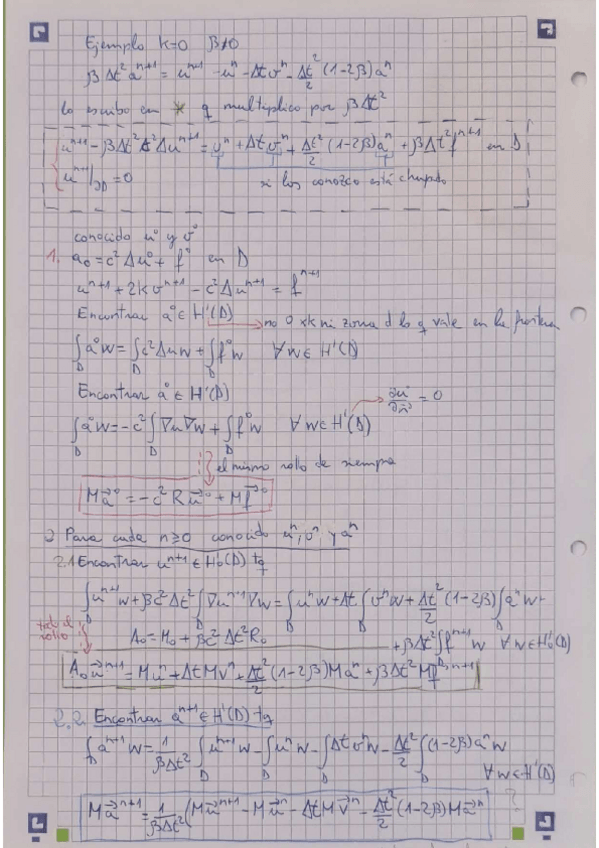 Ejemplo k=0 β≠0
β Δt² aⁿ⁺¹ = uⁿ⁺¹ - uⁿ - Δt vⁿ - Δt²/2 (1-2β) aⁿ
lo escribo en * y multiplico por βΔt²
uⁿ⁺¹ - βΔt² c² Δuⁿ⁺¹ = uⁿ + Δt vⁿ + Δt²/2 (1-2β) aⁿ + βΔt² fⁿ⁺¹ en D
uⁿ⁺¹|∂D = 0 si los conozco está chupado
conocido u⁰ y v⁰
1. a₀ = c² Δu⁰ + f⁰ en D
uⁿ⁺¹ + 2k vⁿ⁺¹ - c² Δuⁿ⁺¹ = fⁿ⁺¹
Encontrar a⁰ ∈ H¹(D) → no 0 xk ni zorra d lo q vale en la frontera
∫_D a⁰w = ∫_D c² Δu w + ∫_D f⁰w ∀w ∈ H¹(D)
Encontrar a⁰ ∈ H¹(D) ∂u⁰/∂n = 0
∫_D a⁰w = -c² ∫_D ∇u ∇w + ∫_D f⁰w ∀w ∈ H¹(D)
el mismo rollo de siempre
M a⃗⁰ = -c² R u⃗⁰ + M f⃗⁰
2 Para cada n≥0 conocido uⁿ, vⁿ y aⁿ
2.1 Encontrar uⁿ⁺¹ ∈ H¹₀(D) tq
∫_D uⁿ⁺¹w + βc²Δt² ∫_D ∇uⁿ⁺¹ ∇w = ∫_D uⁿw + Δt ∫_D vⁿw + Δt²/2 (1-2β) ∫_D aⁿw +
todo el rollo A₀ = M₀ + βc²Δt² R₀ + βΔt² ∫_D fⁿ⁺¹w ∀w ∈ H¹₀(D)
A₀ u⃗ⁿ⁺¹ = M u⃗ⁿ + Δt M v⃗ⁿ + Δt²/2 (1-2β) M a⃗ⁿ + βΔt² M f⃗ⁿ⁺¹
2.2. Encontrar aⁿ⁺¹ ∈ H¹(D) tq
∫_D aⁿ⁺¹w = 1/βΔt² ∫_D uⁿ⁺¹w - ∫_D uⁿw - ∫_D Δt vⁿw - Δt²/2 ∫_D (1-2β) aⁿw
∀w ∈ H¹(D)
M a⃗ⁿ⁺¹ = 1/βΔt² (M u⃗ⁿ⁺¹ - M u⃗ⁿ - Δt M v⃗ⁿ - Δt²/2 (1-2β) M a⃗ⁿ ?